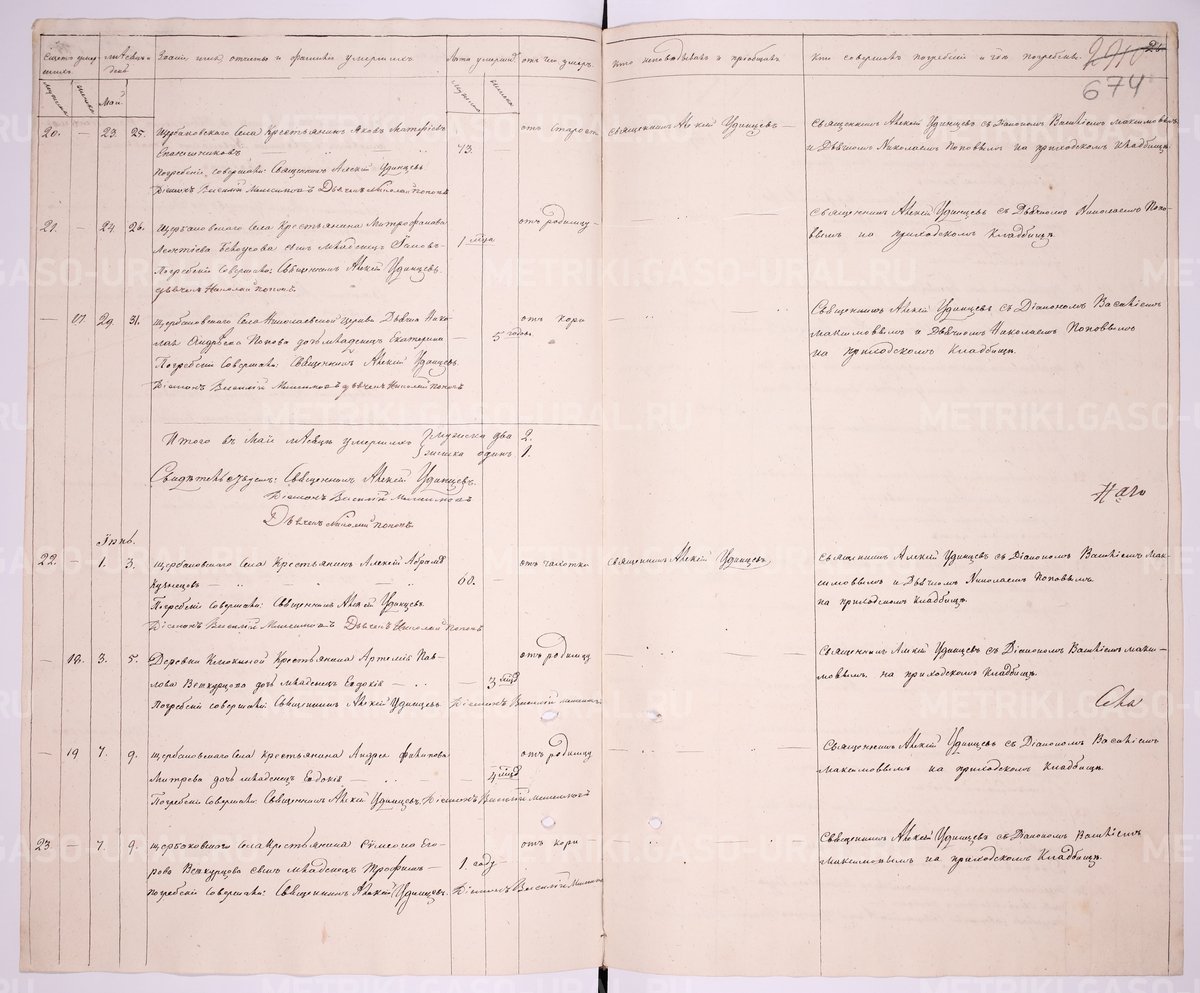 Счетъ умершихъ.
Мѣсяцъ и день
Званіе, имя, отчество и фамилія умершихъ
Лѣта умершаго
отъ чего умеръ.
Кто исповѣдывалъ и пріобщалъ
Кто совершалъ погребеніе и гдѣ погребены.
мужеска
женска
Май
мужеска
женска
674
20. — 23. 25. Щербаковскаго Села Крестьянинъ Яковъ Матвѣевъ 73. отъ старости Священникъ Алексѣй Удинцевъ — Священникъ Алексѣй Удинцевъ съ Діакономъ Василіемъ Максимовымъ
и Дьячкомъ Николаемъ Поповымъ на приходскомъ кладбищѣ.
Погребеніе совершали: Священникъ Алексѣй Удинцевъ
Діаконъ Василій Максимовъ Дьячекъ Николай Поповъ
21. — 24. 26. Щербаковскаго Села Крестьянина Митрофана 1 мца отъ родимцу — Священникъ Алексѣй Удинцевъ съ Дьячкомъ Николаемъ Попо-
Леонтіева сынъ младенецъ
вымъ на приходскомъ кладбищѣ
Погребеніе совершали: Священникъ Алексѣй Удинцевъ
дьячекъ Николай Поповъ
— 17. 29. 31. Щербаковскаго Села Николаевской Церкви Дьячка Нико- 5 годовъ отъ кори Священникъ Алексѣй Удинцевъ съ Діакономъ Василіемъ
лая Андреева Попова дочь младенецъ Екатерина —
Максимовымъ и Дьячкомъ Николаемъ Поповымъ
Погребеніе совершали: Священникъ Алексѣй Удинцевъ
на приходскомъ кладбищѣ.
Діаконъ Василій Максимовъ дьячекъ Николай Поповъ
Итого въ Май мѣсяцѣ умершихъ мужеска два 2.
женска одинъ 1.
Свидѣтельствуемъ: Священникъ Алексѣй Удинцевъ
Діаконъ Василій Максимовъ
Дьячекъ Николай Поповъ
Іюнь.
22. — 1. 3. Щербаковскаго Села Крестьянинъ Алексѣй Абрамовъ 60. отъ чахотки Священникъ Алексѣй Удинцевъ Священникъ Алексѣй Удинцевъ съ Діакономъ Василіемъ Мак-
Кузнецовъ —
симовымъ и Дьячкомъ Николаемъ Поповымъ
Погребеніе совершали: Священникъ Алексѣй Удинцевъ
на приходскомъ кладбищѣ.
Діаконъ Василій Максимовъ Дьячекъ Николай Поповъ
— 18. 3. 5. Деревни Крестьянина Артемія Пав- 3 мцд отъ родимцу Священникъ Алексѣй Удинцевъ съ Діакономъ Василіемъ Макси-
лова дочь младенецъ Евдокія —
мовымъ на приходскомъ кладбищѣ.
Погребеніе совершали: Священникъ Алексѣй Удинцевъ Діаконъ Василій
— 19 7. 9. Щербаковскаго Села Крестьянина Андрея Филипова 4 мцд отъ родимцу Священникъ Алексѣй Удинцевъ съ Діакономъ Василіемъ
Дмитрева дочь младенецъ Евдокія —
Максимовымъ на приходскомъ кладбищѣ.
Погребеніе совершали: Священникъ Алексѣй Удинцевъ. Діаконъ Василій Максимовъ
23. — 7. 9. Щербаковскаго Села Крестьянина Сѵмеона Его- 1. году отъ кори Священникъ Алексѣй Удинцевъ съ Діакономъ Василіемъ
рова сынъ младенецъ Трофимъ —
Максимовымъ на приходскомъ кладбищѣ.
Погребеніе совершали: Священникъ Алексѣй Удинцевъ. Діаконъ Василій
METRIKI.GASO-URAL.RU